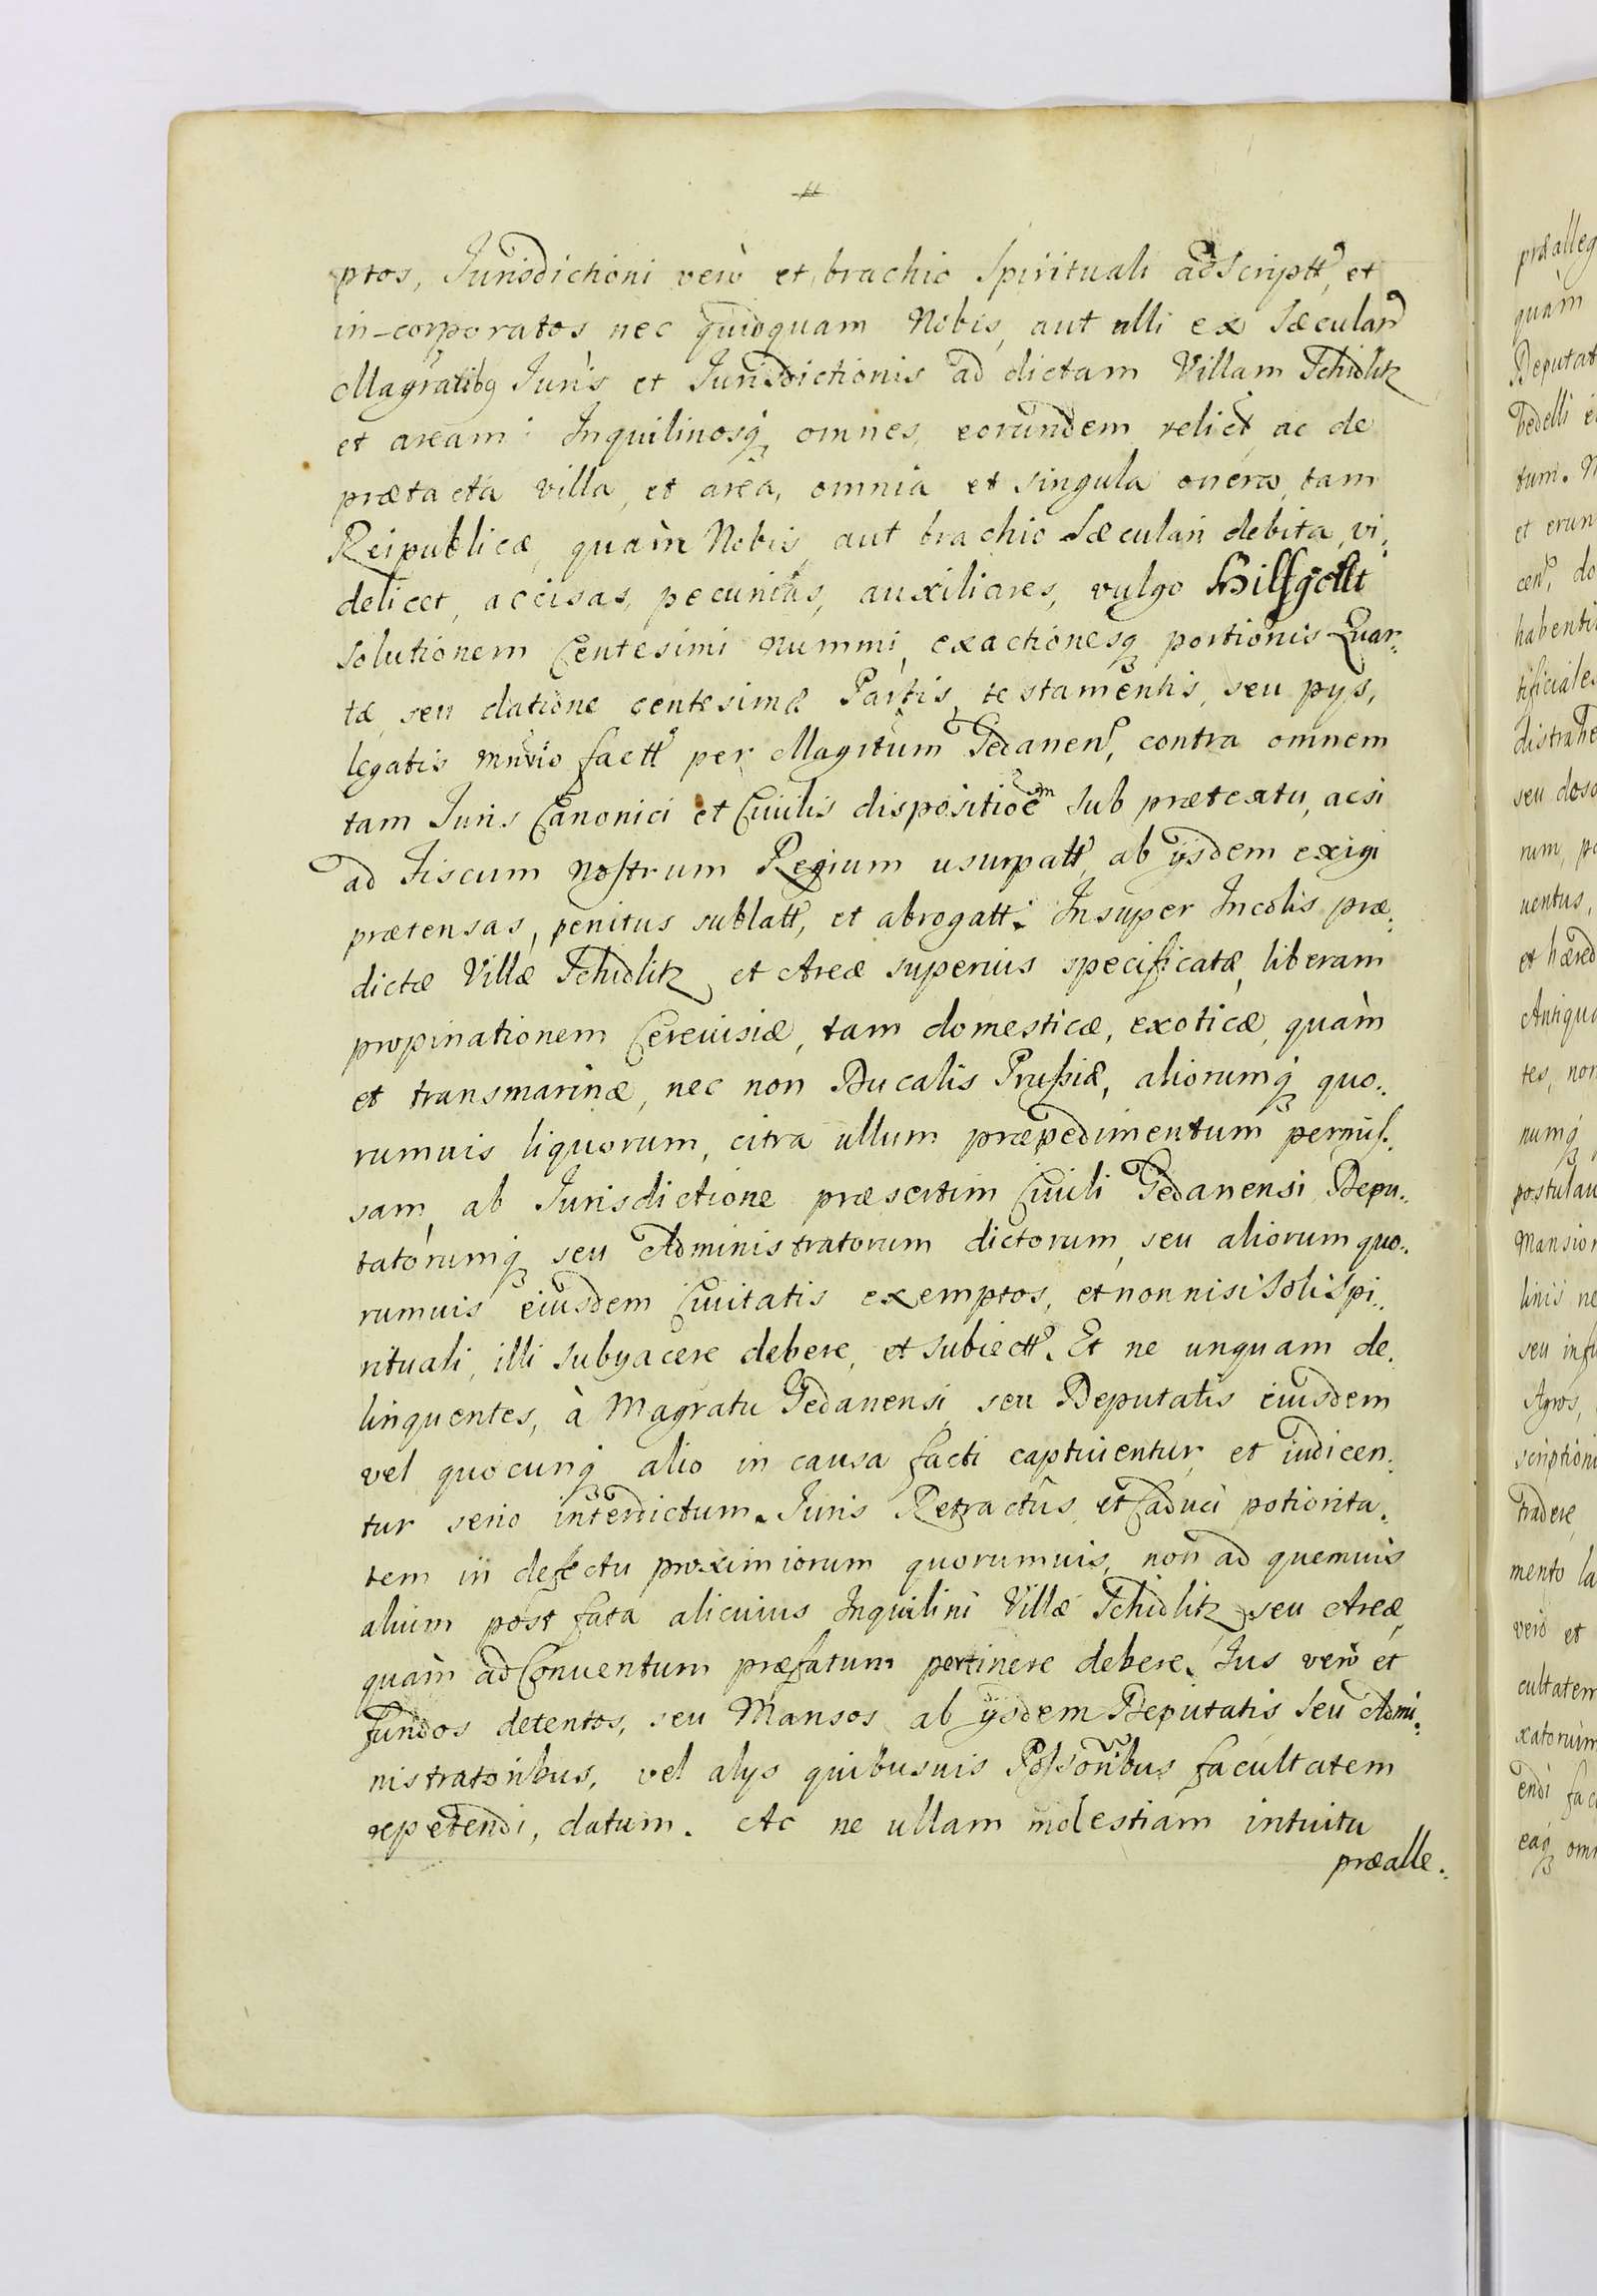 ptos, Jurisdictioni verò et brachio Spirituali adscriptt, et
in-corporatos nec quidquam Nobis, aut ulli ex Sæcular
Magratibq Juris et Jurisdictionis ad dictam Villam Schidlitz
et aream: Inquilinosq omnes, eorundem relict ac de
prætacta villa, et area, omnia et singula onera, tam
Reipublicæ, quàm Nobis, aut brachio Sæculari debita, vi:
delicet, accisas, pecunias, auxiliares, vulgo Hilfgellt
solutionem Centesimi nummi, exactionesq portionis Quar:
tæ, seu datione centesimæ Partis, testamentis, seu pys,
legatis factt per Magrtum Gedanen, contra omnem
tam Juris Canonici et Ciuilis dispositioem sub prætextu, acsi
ad Fiscum nostrum Regium usurpatt, ab ijsdem exigi
prætensas, penitus sublatt, et abrogatt. Insuper Incolis præ:
dictæ Villæ Schidlitz et Areæ superius specificatæ, liberam
propinationem Cereuisiæ, tam domesticæ, exoticæ, quàm
et transmarinæ, nec non Ducalis Prussiæ, aliorumq quo:
rumuis liquorum, citra ullum præpedimentum permis:
sam, ab Jurisdictione præsertim Ciuili Gedanensi Depu:
tatorumq seu Administratorum dictorum, seu aliorum quo:
rumuis eiusdem Ciuitatis exemptos, et nonnisi Soli Spi:
rituali, illi subyacere debere, et subiectt. Et ne unquam de:
linquentes, à Magratu Gedanensi, seu Deputatis eiusdem
vel quocunq alio in causa facti captiuentur et iudicen:
tur serio interdictum. Juris Retractûs et Caduci potiorita:
tem in defectu proximiorum quorumuis, non ad quemuis
alium post fata alicuius Inquilini Villæ Schidlitz seu Areæ,
quàm ad Conuentum præfatum pertinere debere. Jus verò et
fundos detentos, seu Mansos ab ijsdem Deputatis seu Admi:
nistratoribus, vel alys quibusuis Possoribus facultatem
repetendi, datum. Ac ne ullam molestiam intuitu
præalle:
præalleg
quàm
Deputat
bedelli e
tum. N
et erun
cen, do
habenti
tificiales
distrahe
seu doso
rum, po
uentus,
et hæred
Antiqua
tes, non
numq
postulau
Mansion
linis ne
seu infu
Agros,
scriptioni
tradere,
mento la
verò et
cultatem
xatorum
endi fac
eaq omn